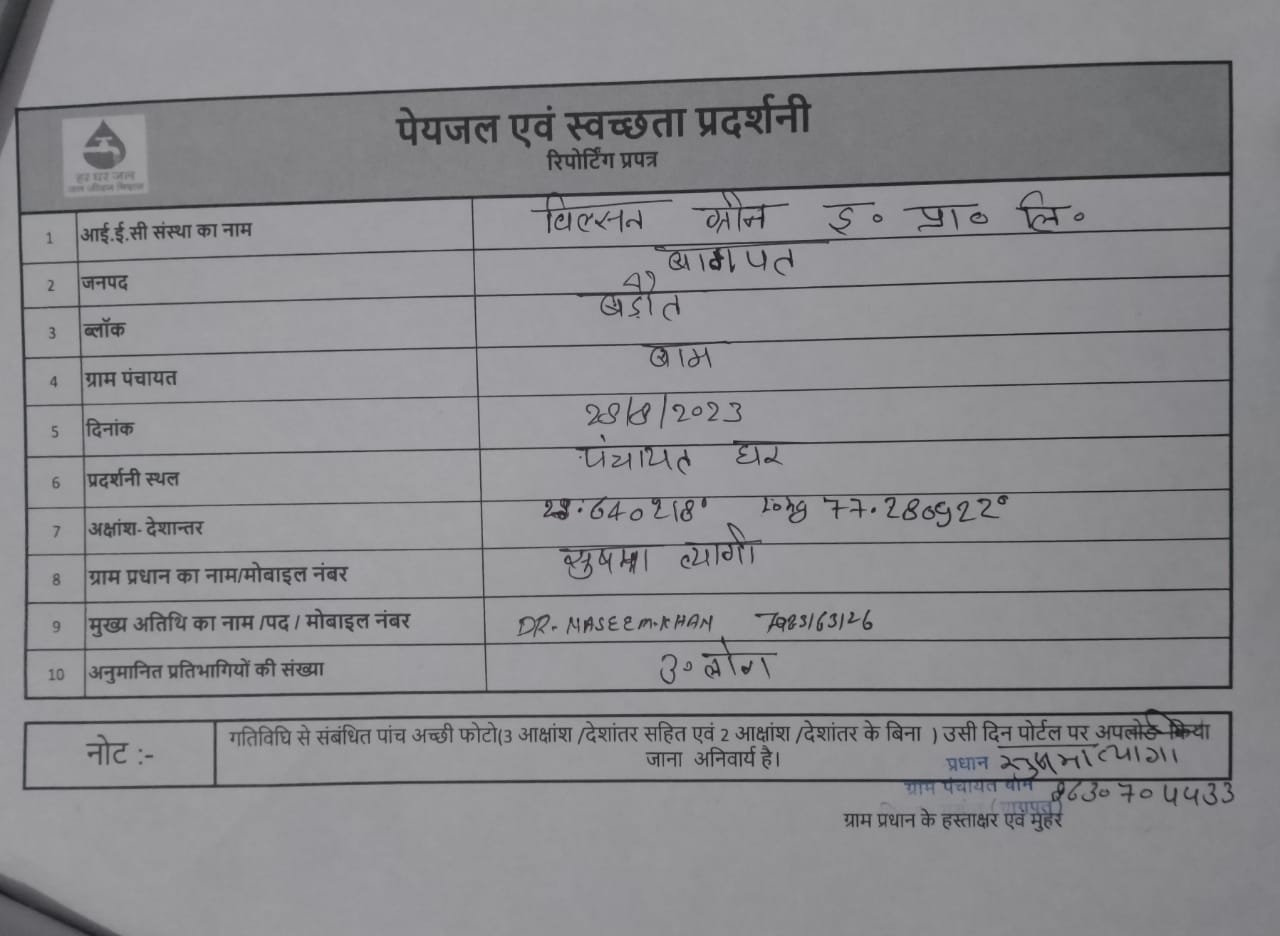 पेयजल एवं स्वच्छता प्रदर्शनी
रिपोर्टिंग प्रपत्र
हर घर जल
जल जीवन मिशन
1 आई.ई.सी संस्था का नाम विल्सन ग्रीन इ० प्रा० लि०
2 जनपद बागपत
3 ब्लॉक बड़ौत
4 ग्राम पंचायत बाम
5 दिनांक 28/8/2023
6 प्रदर्शनी स्थल पंचायत घर
7 अक्षांश- देशान्तर 28.640218° Long 77.280922°
8 ग्राम प्रधान का नाम/मोबाइल नंबर सुषमा त्यागी
9 मुख्य अतिथि का नाम /पद / मोबाइल नंबर DR. NASEEM.KHAN
10 अनुमानित प्रतिभागियों की संख्या 30 लोग
नोट :- गतिविधि से संबंधित पांच अच्छी फोटो(3 आक्षांश /देशांतर सहित एवं 2 आक्षांश /देशांतर के बिना ) उसी दिन पोर्टल पर अपलोड किया
जाना अनिवार्य है।
प्रधान सुषमा त्यागी
ग्राम पंचायत बाम
ग्राम प्रधान के हस्ताक्षर एवं मुहर